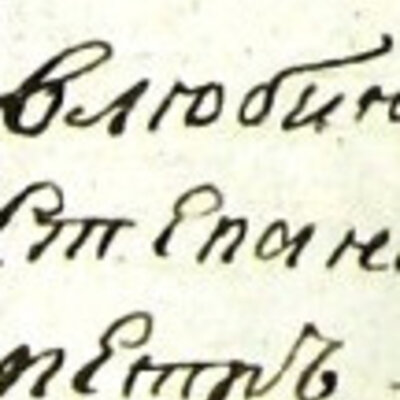 влюбин
степане
петръ